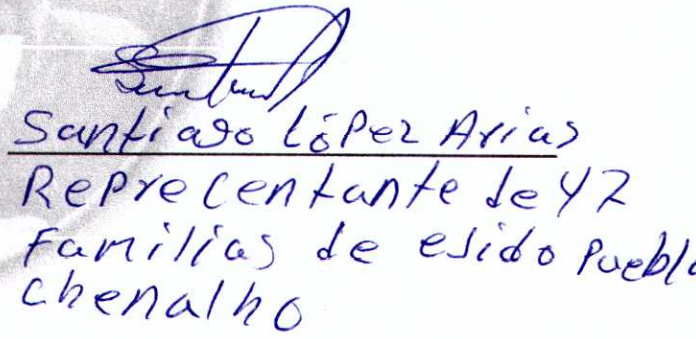 Santiago López Arias
Reprecentante de 47
Familias de ejido Puebla
chenalho